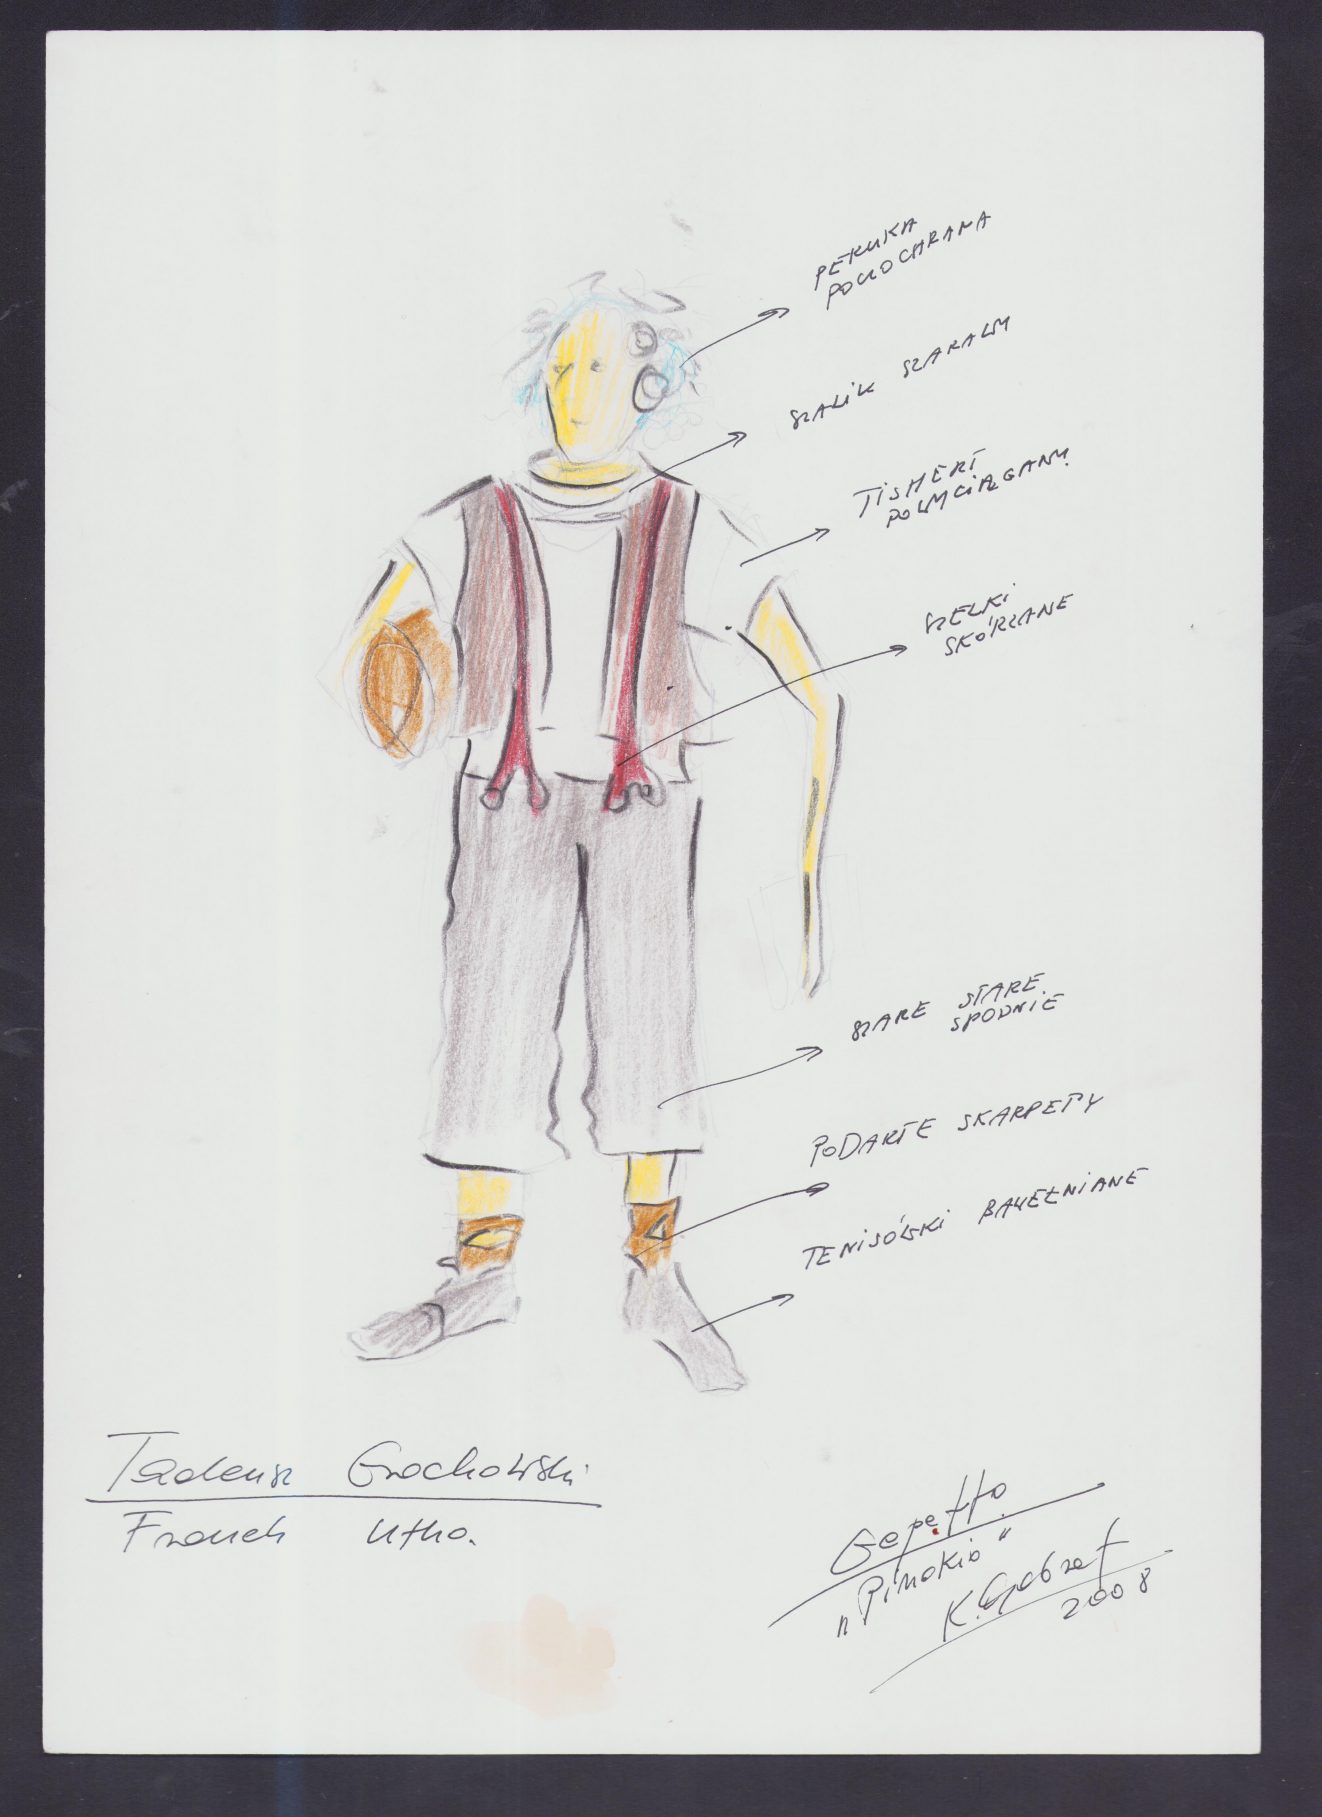 PERUKA
POCIOCHRANA
SZALIK SZARAWY
TISHERT
POWYCIĄGANY
SZELKI
SKÓRZANE
SZARE STARE
SPODNIE
PODARTE SKARPETY
TENISÓWKI BAWEŁNIANE
Tadeusz Grochowski
Franek Utko.
Gepetto
„Pinokio"
K. Gabrat
2008